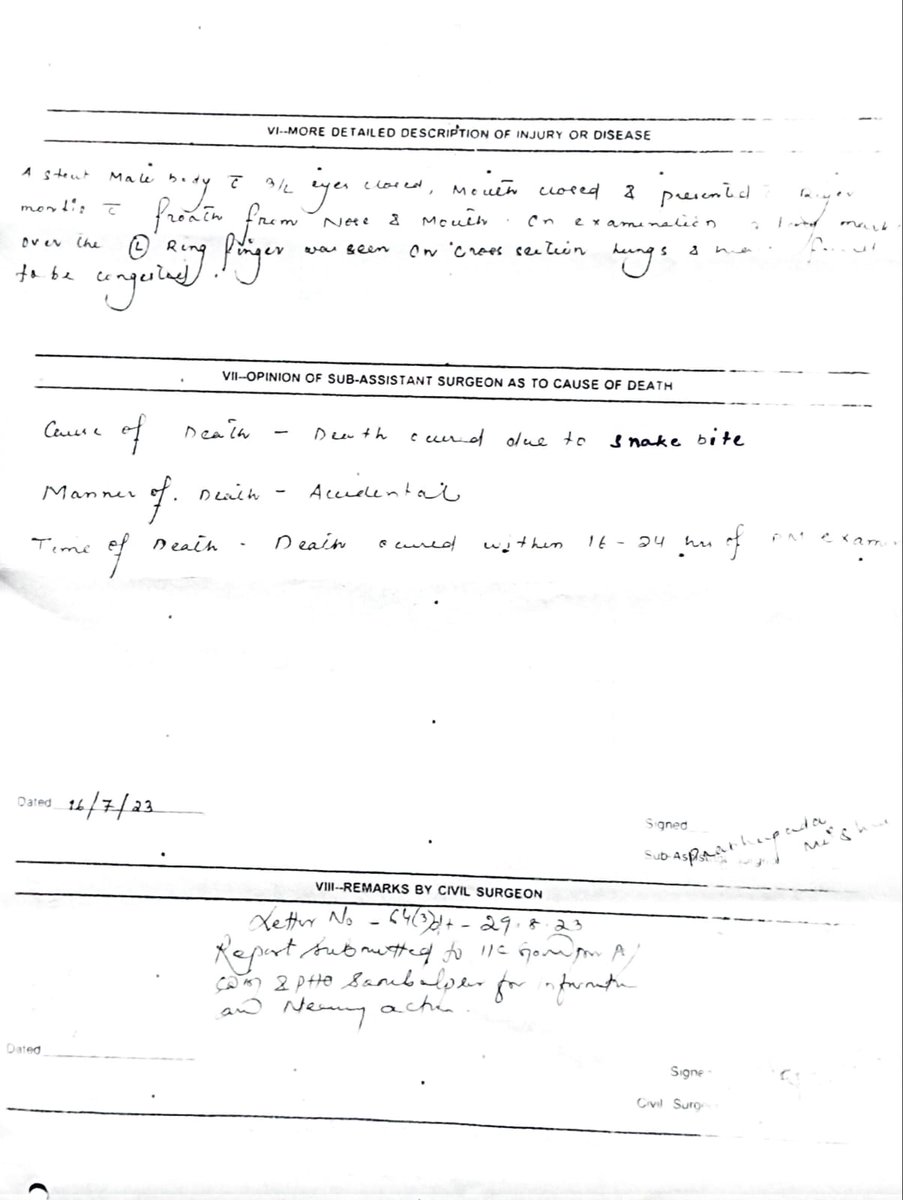 VI--MORE DETAILED DESCRIPTION OF INJURY OR DISEASE
A stout Male body c̄ B/L eyes closed, Mouth closed &
mortis c̄ froath from Nose & Mouth. On examination a mark
over the (L) Ring finger was seen On cross section lungs &
to be congested.
VII--OPINION OF SUB-ASSISTANT SURGEON AS TO CAUSE OF DEATH
Cause of Death - Death occured due to snake bite
Manner of. Death - Accidental
Time of Death - Death occured within 16-24 hrs of exam
Dated 16/7/23
Signed
Sub-Assist
VIII--REMARKS BY CIVIL SURGEON
Letter No - 64(3)dt - 29.8.23
Report submitted to IIC
CDM & PHO Sambalpur for information
and Necessary action.
Dated
Signe
Civil Surg